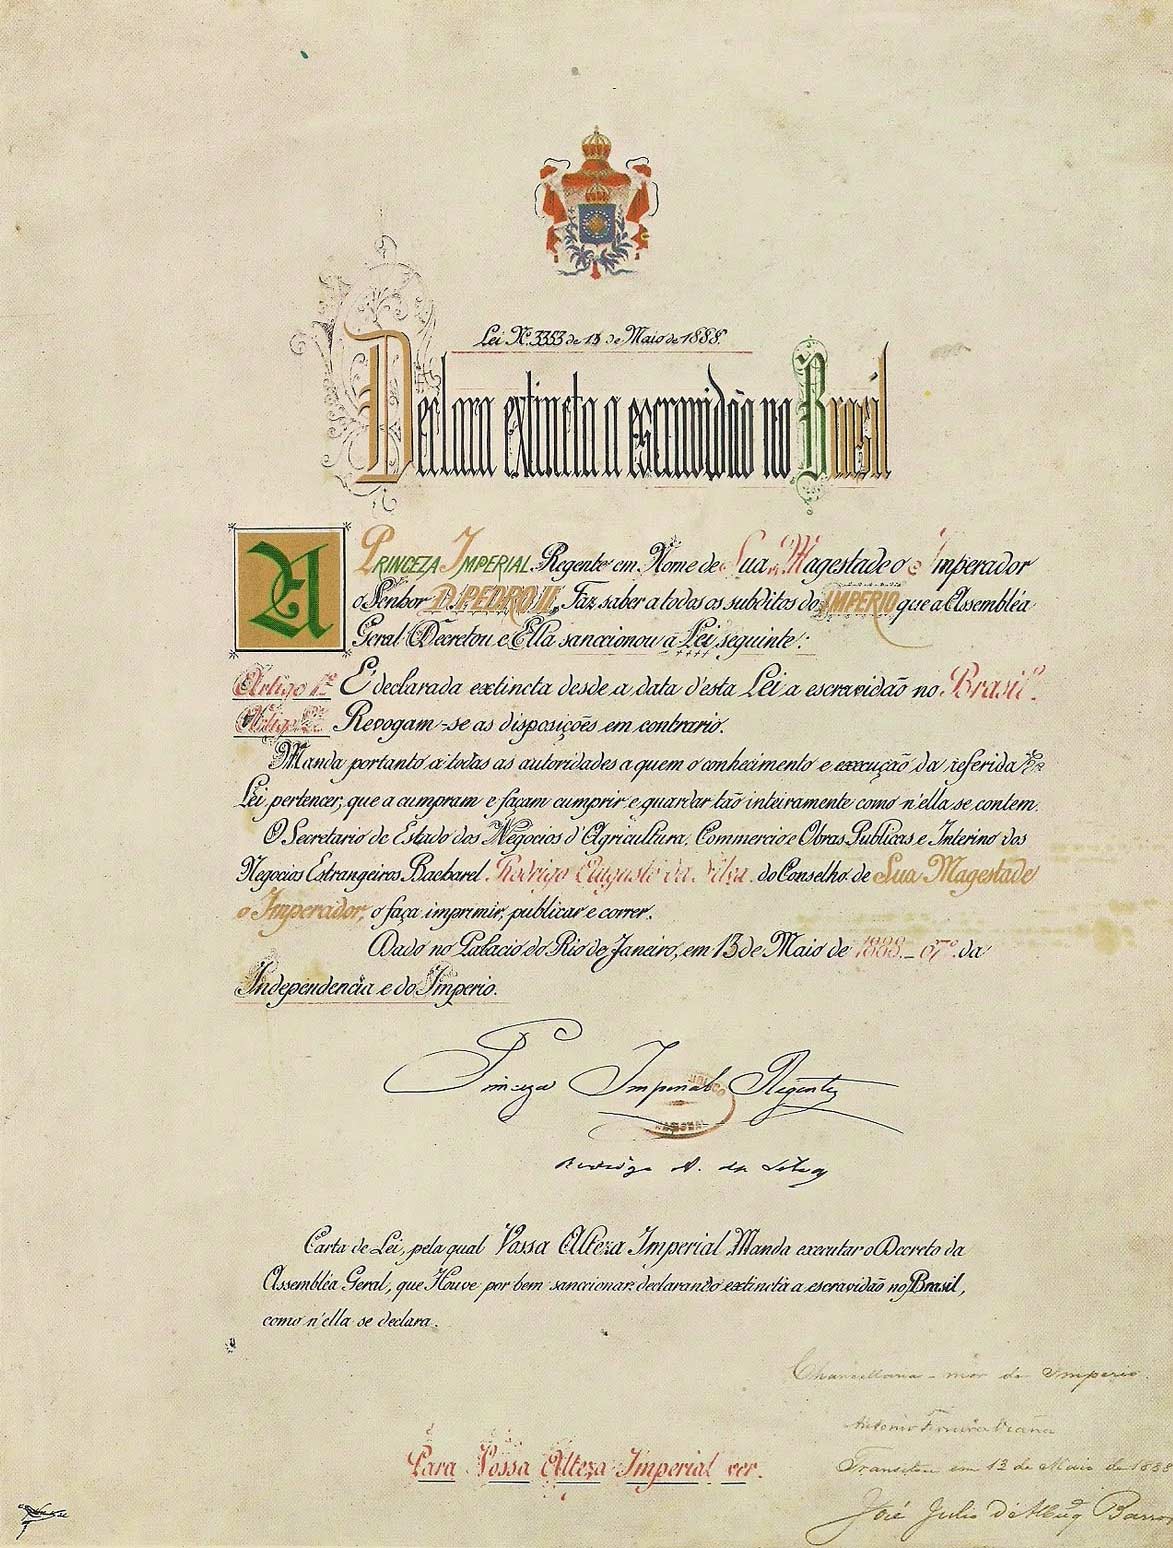 Lei Nº. 3353 de 13 de Maio de 1888.
Declara extincta a escravidão no Brasil
A PRINCEZA IMPERIAL Regente em Nome de Sua Magestade o Imperador
o Senhor D. PEDRO II, Faz saber a todos os subditos do IMPERIO que a Assembléa
Geral Decretou e Ella sanccionou a Lei seguinte:
Artigo 1º É declarada extincta desde a data d'esta Lei a escravidão no Brasil.
Artigo 2º Revogam-se as disposições em contrario.
Manda portanto a todas as autoridades a quem o conhecimento e execução da referida
Lei pertencer, que a cumpram e façam cumprir e guardar tão inteiramente como n'ella se contem.
O Secretario de Estado dos Negocios d'Agricultura, Commercio e Obras Publicas e Interino dos
Negocios Estrangeiros Bacharel Rodrigo Augusto da Silva do Conselho de Sua Magestade
o Imperador, o faça imprimir, publicar e correr.
Dado no Palacio do Rio de Janeiro, em 13 de Maio de 1888.- 67º da
Independencia e do Imperio.
Princeza Imperial Regente
Rodrigo A. da Silva
Carta de Lei, pela qual Vossa Alteza Imperial Manda executar o Decreto da
Assembléa Geral, que Houve por bem sanccionar declarando extincta a escravidão no Brasil,
como n'ella se declara.
Chancellaria-mor do Imperio.
Antonio Ferreira Vianna
Para Vossa Alteza Imperial ver.
Transitou em 13 de Maio de 1888
José Julio d'Albuq Barros